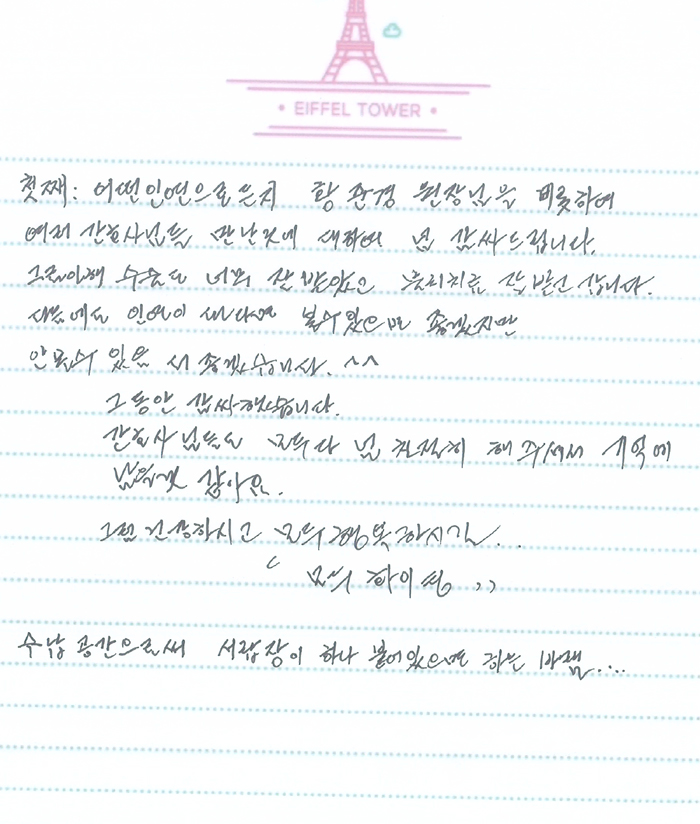 • EIFFEL TOWER •
첫째: 어떤인연으로든지 황 원장님을 비롯하여
여러 간호사님들 만난것에 대하여 넘 감싸드립니다.
수술도 너무 잘 받았고 물리치료 잘 받고 갑니다.
다음에도 인연이 볼수있으면 좋겠지만
안볼수 있음 더 좋겠습니다. ^^
그동안 감싸했습니다.
간호사님들도 모두다 넘 친절히 해주셔서 기억에
남을것 같아요.
그럼 건강하시고 모두 행복하시길..
모두 하이팅 ,,
수납공간으로써 서랍장이 하나 붙어있으면 하는 바램....